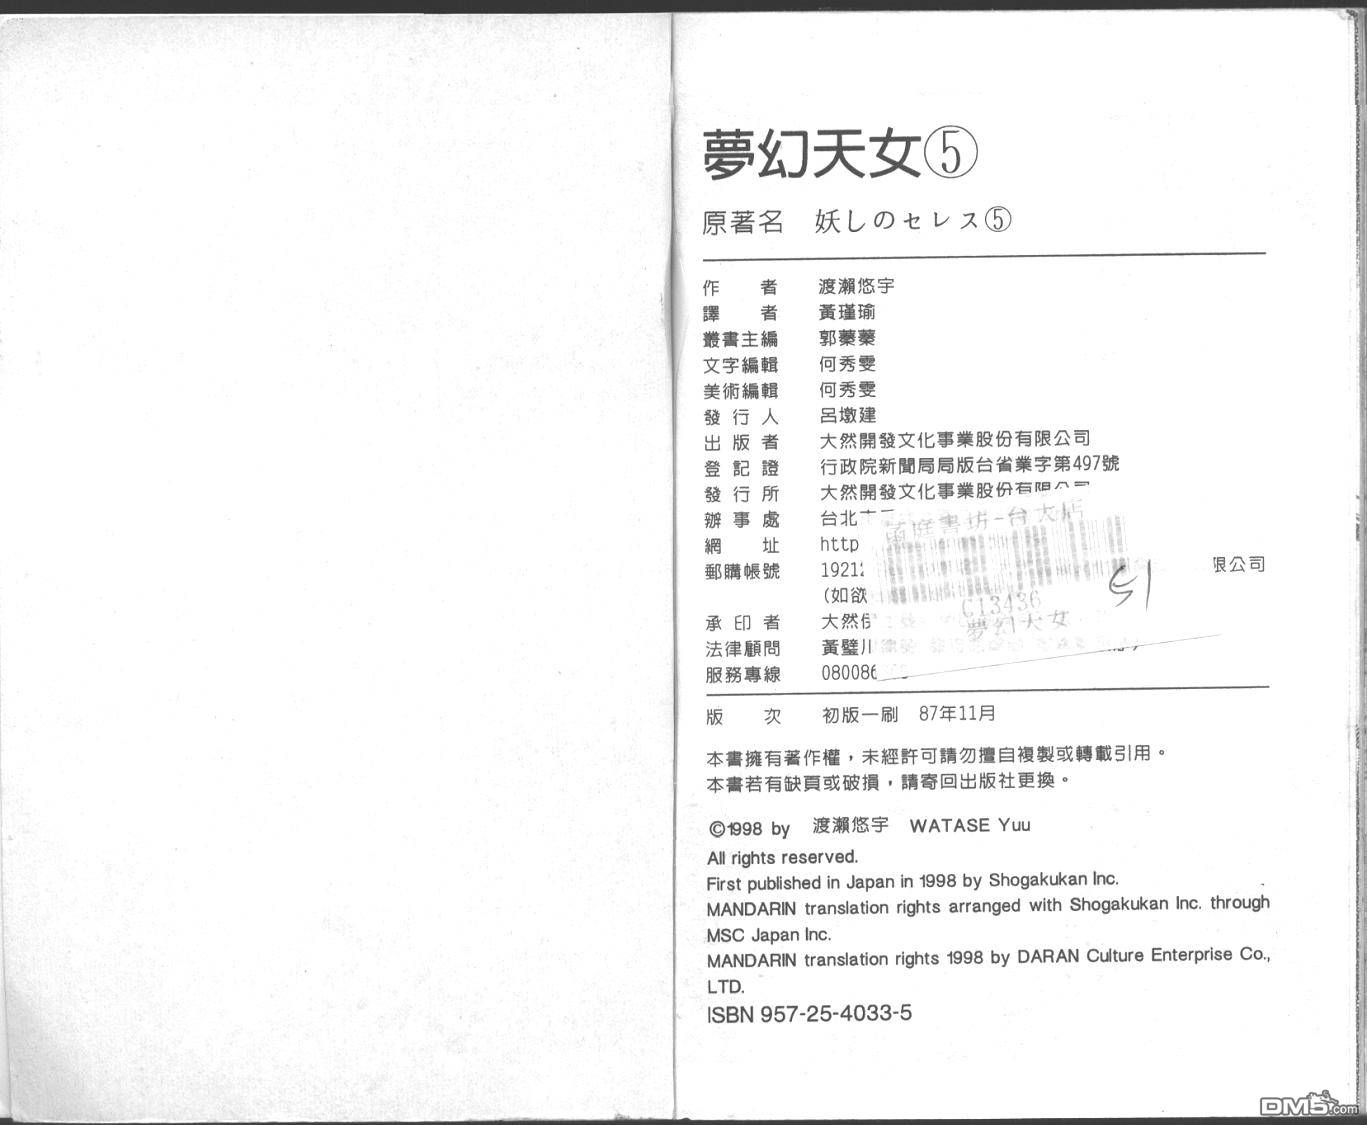 夢幻天女⑤
原著名　妖しのセレス⑤
作者　渡瀨悠宇
譯者　黃瑾瑜
叢書主編　郭蓁蓁
文字編輯　何秀雯
美術編輯　何秀雯
發行人　呂墩建
出版者　大然開發文化事業股份有限公司
登記證　行政院新聞局局版台省業字第497號
發行所　大然開發文化事業股份有限公司
辦事處　台北
網址　http
郵購帳號　1921　限公司
(如欲
承印者　大然
法律顧問　黃璧川
服務專線　080086
-台大店
C13436
夢幻天女
51
版次　初版一刷　87年11月
本書擁有著作權，未經許可請勿擅自複製或轉載引用。
本書若有缺頁或破損，請寄回出版社更換。
©1998 by 渡瀨悠宇 WATASE Yuu
All rights reserved.
First published in Japan in 1998 by Shogakukan Inc.
MANDARIN translation rights arranged with Shogakukan Inc. through
MSC Japan Inc.
MANDARIN translation rights 1998 by DARAN Culture Enterprise Co.,
LTD.
ISBN 957-25-4033-5
DM5.com